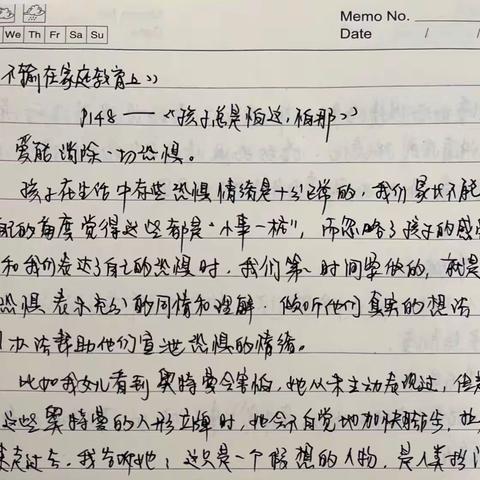 Memo No.
We Th Fr Sa Su
Date / /
不输在家庭教育上》
P148——《孩子总是怕这,怕那》
爱能消除一切恐惧。
孩子在生活中有些恐惧情绪是十分正常的,我们家长不能
的角度觉得这些都是“小事一桩”,而忽略了孩子的感
和我们表达了自己的恐惧时,我们第一时间要做的,就是
恐惧表示充分的同情和理解,倾听他们真实的想法
办法帮助他们宣泄恐惧的情绪。
比如我女儿看到奥特曼会害怕,她从未主动表现过,但
这些奥特曼的人形立牌时,她会不自觉地加快
过去。我告诉她:这只是一个假想的人物,是人类